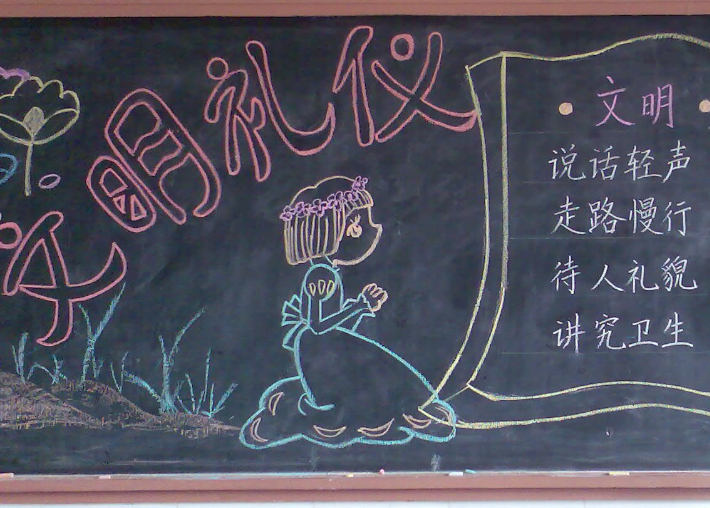 文明礼仪
文明
说话轻声
走路慢行
待人礼貌
讲究卫生